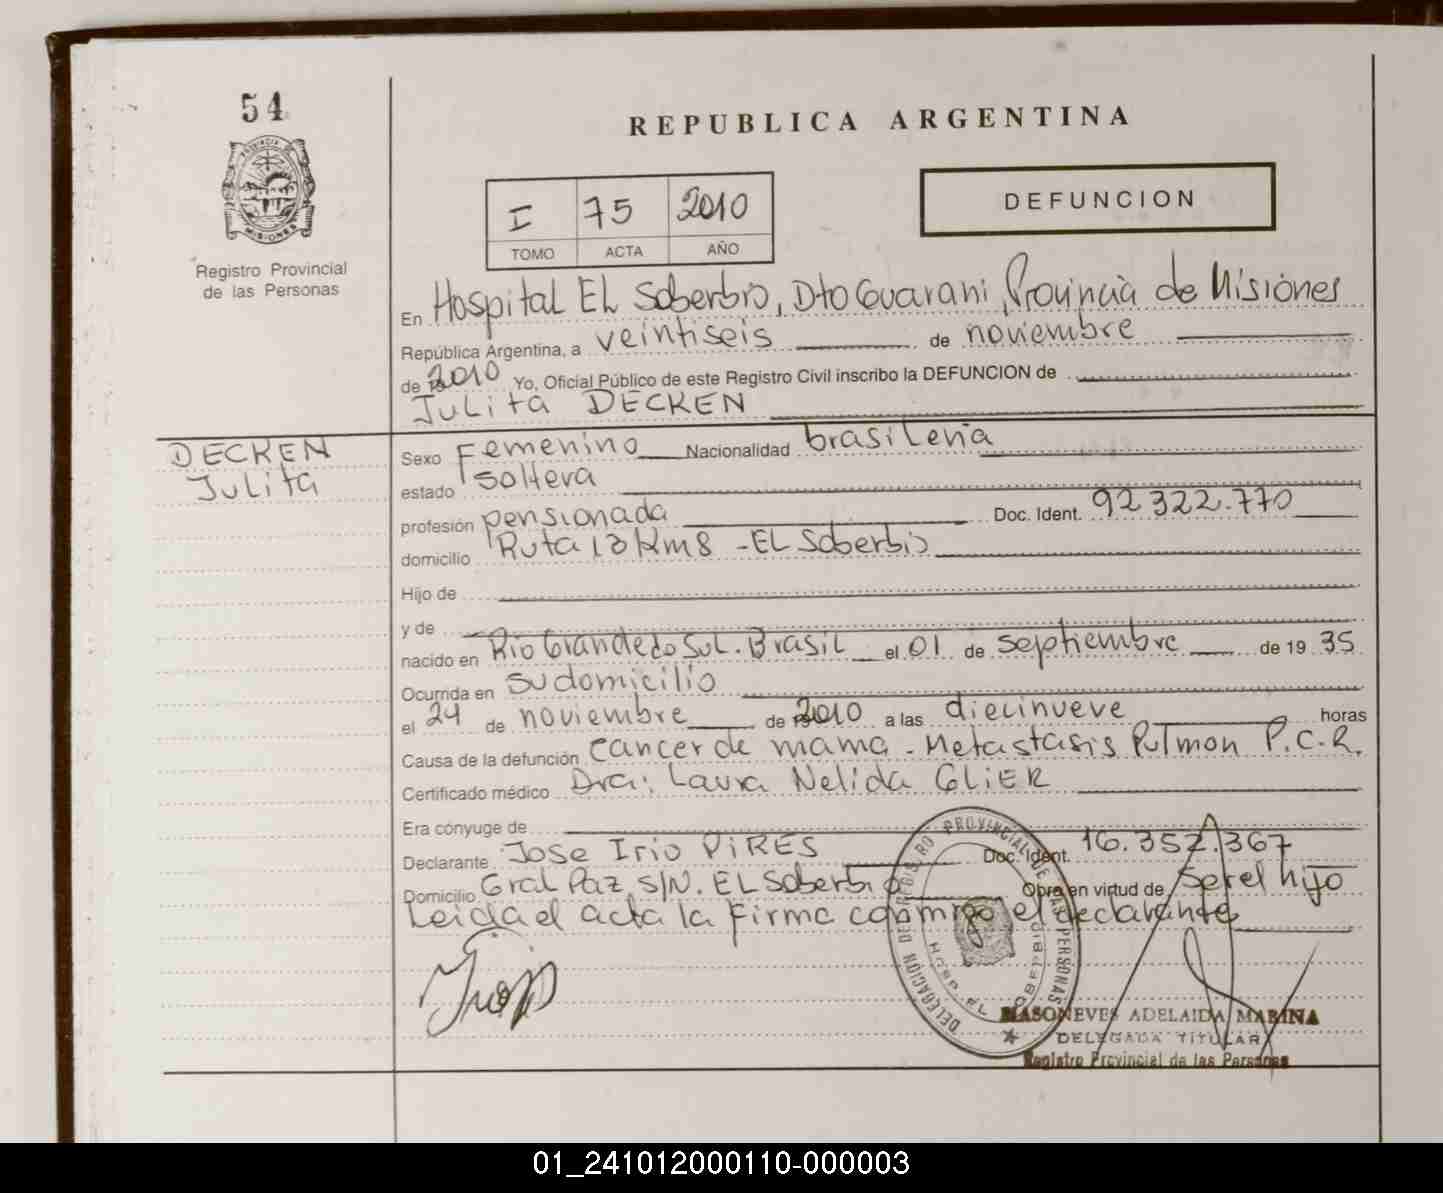 54
REPUBLICA ARGENTINA
I 75 2010
TOMO ACTA AÑO
DEFUNCION
PROVINCIA DE
MISIONES
Registro Provincial
de las Personas
En Hospital EL Soberbio, Dto Guarani, Provincia de Misiones
República Argentina, a veintiseis de noviembre
de 2010 Yo, Oficial Público de este Registro Civil inscribo la DEFUNCION de
Julita DECKEN
DECKEN
Julita
Sexo Femenino Nacionalidad brasilena
estado soltera
profesión pensionada Doc. Ident. 92.322.770
domicilio Ruta 13 Km 8 - EL Soberbio
Hijo de
y de
nacido en Rio Grande do Sul. Brasil el 01 de septiembre de 19 35
Ocurrida en su domicilio
el 24 de noviembre de 2010 a las diecinueve horas
Causa de la defunción cancer de mama - Metastasis Pulmon P.C.R.
Certificado médico Dra: Laura Nelida GLIER
Era cónyuge de
Declarante Jose Irio PIRES Doc. Ident. 16.352.367
Domicilio Gral Paz S/N. EL Soberbio Obra en virtud de ser el hijo
Leida el acta la firma conmigo el declarante
DELEGACION DE REGISTRO PROVINCIAL DE LAS PERSONAS
HOSP. EL SOBERBIO
MASONEVES ADELAIDA MARINA
DELEGADA TITULAR
Registro Provincial de las Personas
01_241012000110-000003